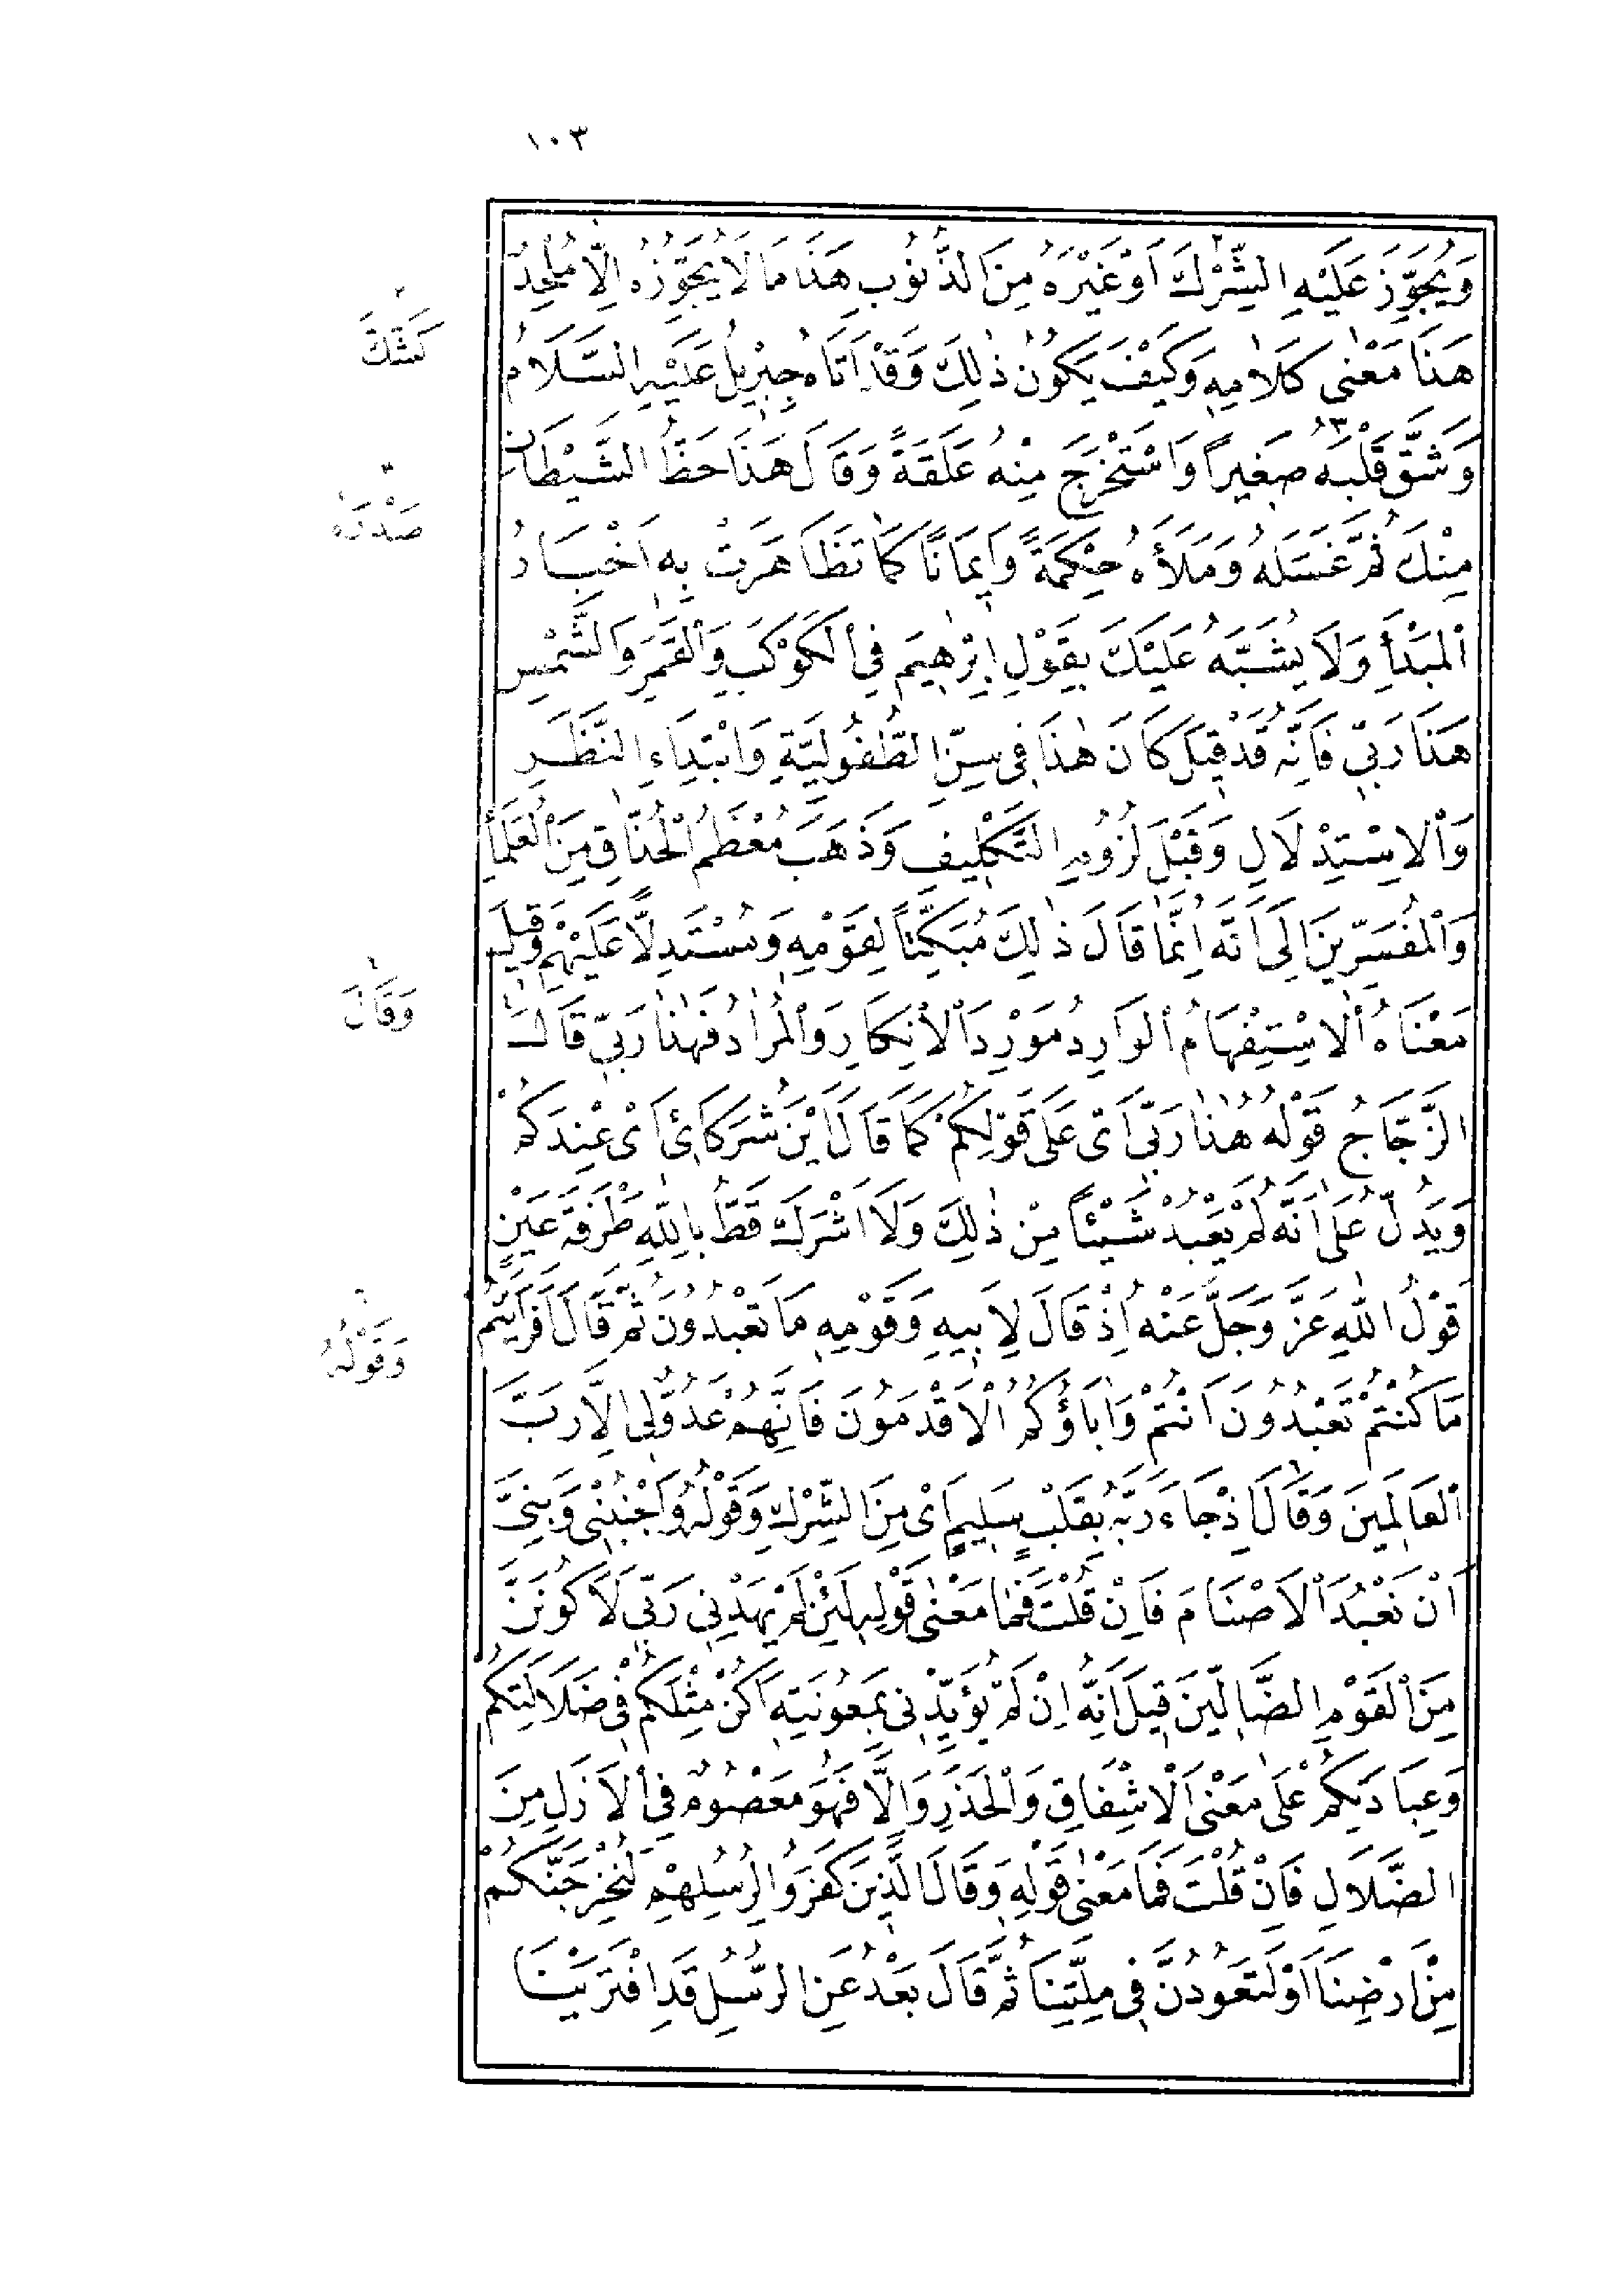 ١٠٣
وَيُجَوِّزَ عَلَيْهِ الشِّرْكَ اَوْ غَيْرَهُ مِنَ الذُّنُوبِ هَذَا مَا لَا يُجَوِّزُهُ اِلَّا مُلْحِدٌ
هَذَا مَعْنٰى كَلَامِهِ وَكَيْفَ يَكُونُ ذٰلِكَ وَقَدْ اَتَاهُ جِبْرِيلُ عَلَيْهِ السَّلَامُ
وَشَقَّ قَلْبَهُ صَغِيراً وَاسْتَخْرَجَ مِنْهُ عَلَقَةً وَقَالَ هَذَا حَظُّ الشَّيْطَانِ
مِنْكَ ثُمَّ غَسَلَهُ وَمَلَأَهُ حِكْمَةً وَاِيمَانًا كَمَا تَظَاهَرَتْ بِهِ اَخْبَارُ
الْمَبْدَأِ وَلَا يُشَبَّهُ عَلَيْكَ بِقَوْلِ اِبْرٰهِيمَ فِى الْكَوْكَبِ وَالْقَمَرِ وَالشَّمْسِ
هَذَا رَبِّى فَاِنَّهُ قَدْ قِيلَ كَانَ هٰذَا فِى سِنِّ الطُّفُولِيَّةِ وَابْتِدَاءِ النَّظَرِ
وَالْاِسْتِدْلَالِ وَقَبْلَ لُزُومِ التَّكْلِيفِ وَذَهَبَ مُعْظَمُ الْحُذَّاقِ مِنَ الْعُلَمَاءِ
وَالْمُفَسِّرِينَ اِلَى اَنَّهُ اِنَّمَا قَالَ ذٰلِكَ مُبَكِّتًا لِقَوْمِهِ وَمُسْتَدِلًّا عَلَيْهِمْ وَقِيلَ
مَعْنَاهُ الْاِسْتِفْهَامُ الْوَارِدُ مَوْرِدَ الْاِنْكَارِ وَالْمُرَادُ فَهٰذَا رَبِّى قَالَ
الزَّجَّاجُ قَوْلُهُ هٰذَا رَبِّى اَىْ عَلَى قَوْلِكُمْ كَمَا قَالَ اَيْنَ شُرَكَائِى اَىْ عِنْدَكُمْ
وَيَدُلُّ عَلَى اَنَّهُ لَمْ يَعْبُدْ شَيْئاً مِنْ ذٰلِكَ وَلَا اَشْرَكَ قَطُّ بِاللّٰهِ طَرْفَةَ عَيْنٍ
قَوْلُ اللّٰهِ عَزَّ وَجَلَّ عَنْهُ اِذْ قَالَ لِاَبِيهِ وَقَوْمِهِ مَا تَعْبُدُونَ ثُمَّ قَالَ اَفَرَاَيْتُمْ
مَا كُنْتُمْ تَعْبُدُونَ اَنْتُمْ وَاٰبَاؤُكُمُ الْاَقْدَمُونَ فَاِنَّهُمْ عَدُوٌّ لِى اِلَّا رَبَّ
الْعَالَمِينَ وَقَالَ اِذْ جَاءَ رَبَّهُ بِقَلْبٍ سَلِيمٍ اَىْ مِنَ الشِّرْكِ وَقَوْلُهُ وَاجْنُبْنِى وَبَنِىَّ
اَنْ نَعْبُدَ الْاَصْنَامَ فَاِنْ قُلْتَ فَمَا مَعْنٰى قَوْلِهِ لَئِنْ لَمْ يَهْدِنِى رَبِّى لَاَكُونَنَّ
مِنَ الْقَوْمِ الضَّالِّينَ قِيلَ اِنَّهُ اِنْ لَمْ يُؤَيِّدْنِى بِمَعُونَتِهِ اَكُنْ مِثْلَكُمْ فِى ضَلَالَتِكُمْ
وَعِبَادَتِكُمْ عَلَى مَعْنَى الْاِشْفَاقِ وَالْحَذَرِ وَاِلَّا فَهُوَ مَعْصُومٌ فِى الْاَزَلِ مِنَ
الضَّلَالِ فَاِنْ قُلْتَ فَمَا مَعْنٰى قَوْلِهِ وَقَالَ الَّذِينَ كَفَرُوا لِرُسُلِهِمْ لَنُخْرِجَنَّكُمْ
مِنْ اَرْضِنَا اَوْ لَتَعُودُنَّ فِى مِلَّتِنَا ثُمَّ قَالَ بَعْدُ عَنِ الرُّسُلِ قَدِ افْتَرَيْنَا
٢
كَشَكَّ
٣
صَدْرَهُ
٦
وَقَالَ
٦
وَقَوْلُهُ